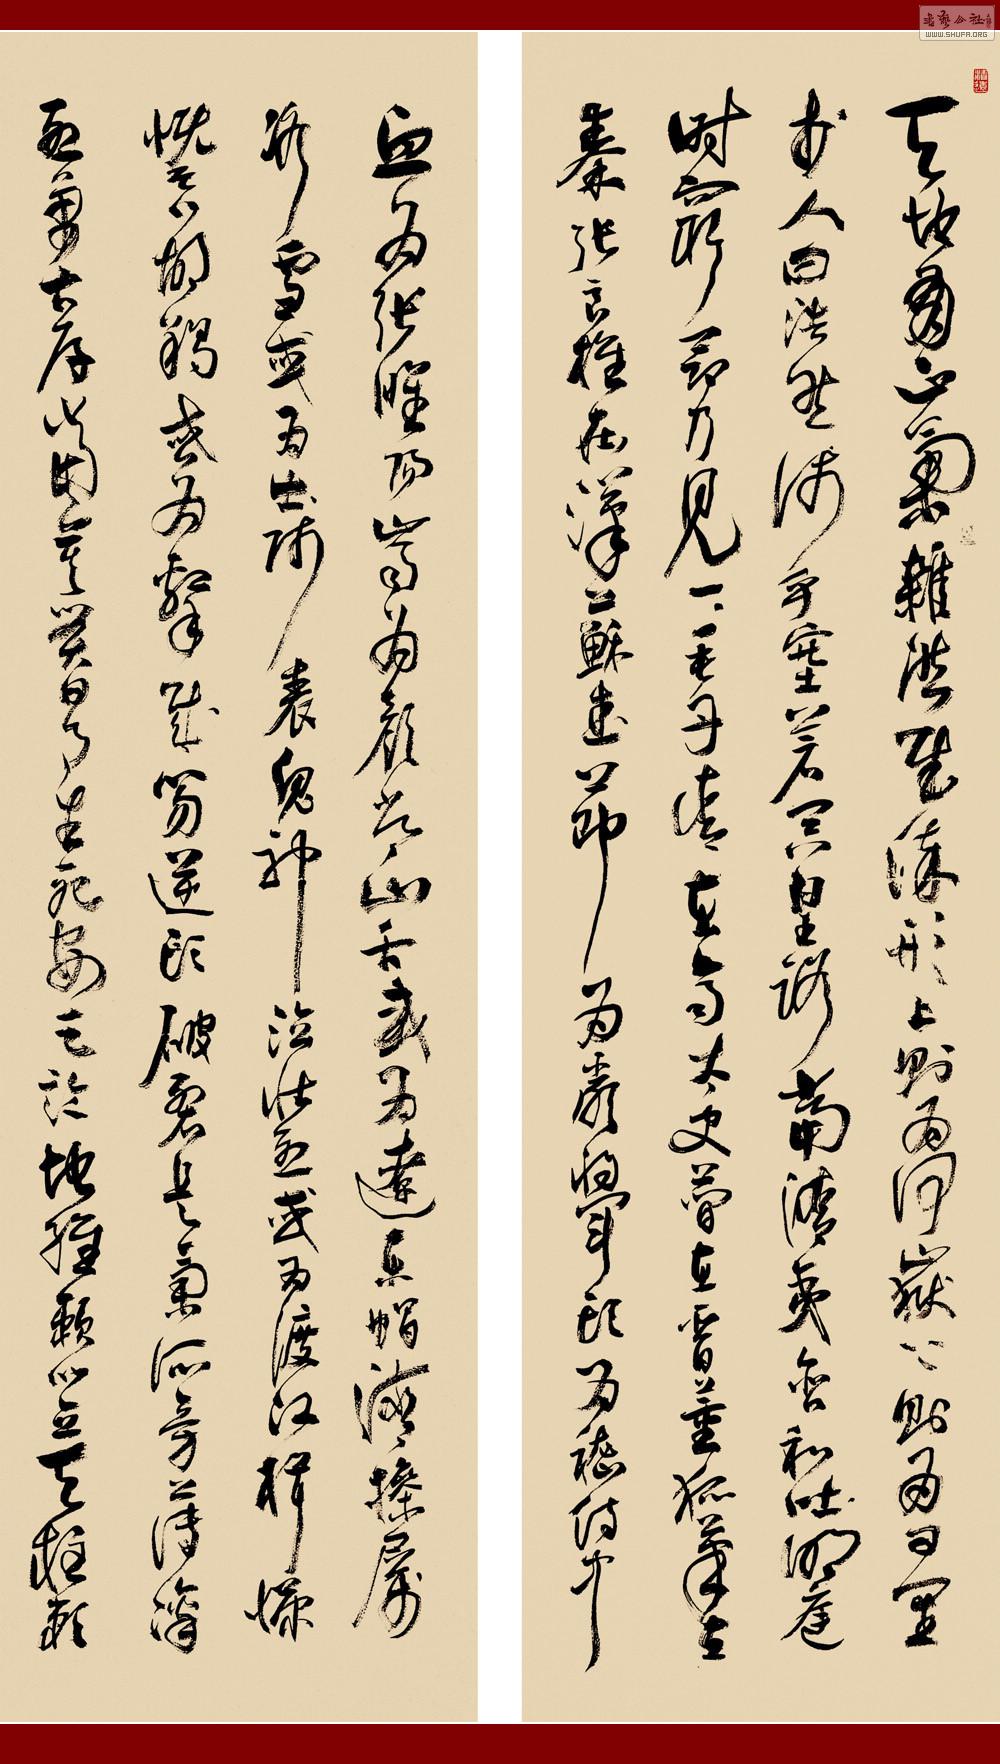 天地有正氣雜然賦流形下則為河嶽上則為日星
於人曰浩然沛乎塞蒼冥皇路當清夷含和吐明庭
时窮節乃見一一垂丹青在齊太史簡在晉董狐筆在
秦張良椎在漢蘇武節為嚴將軍頭為嵇侍中
血為張睢陽齒為顏常山舌或為遼東帽清操厲
冰雪或為出師表鬼神泣壯烈或為渡江楫慷
慨吞胡羯或為擊賊笏逆頭破裂是氣所旁薄凜
烈萬古存當其貫日月生死安足論地維賴以立天柱賴
WWW.SHUFA.ORG